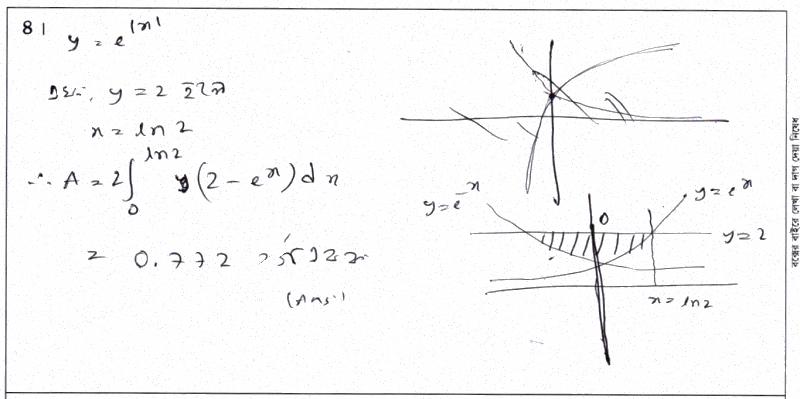 ৪।
y = e^|x|
এখন, y = 2 হলে
x = ln 2
∴ A = 2∫₀^ln2 (2 - e^x) dx
= 0.772
(Ans:)
y = e^-x
0
y = e^x
y = 2
x = ln2
বক্সের বাইরে লেখা বা দাগ দেয়া নিষেধ